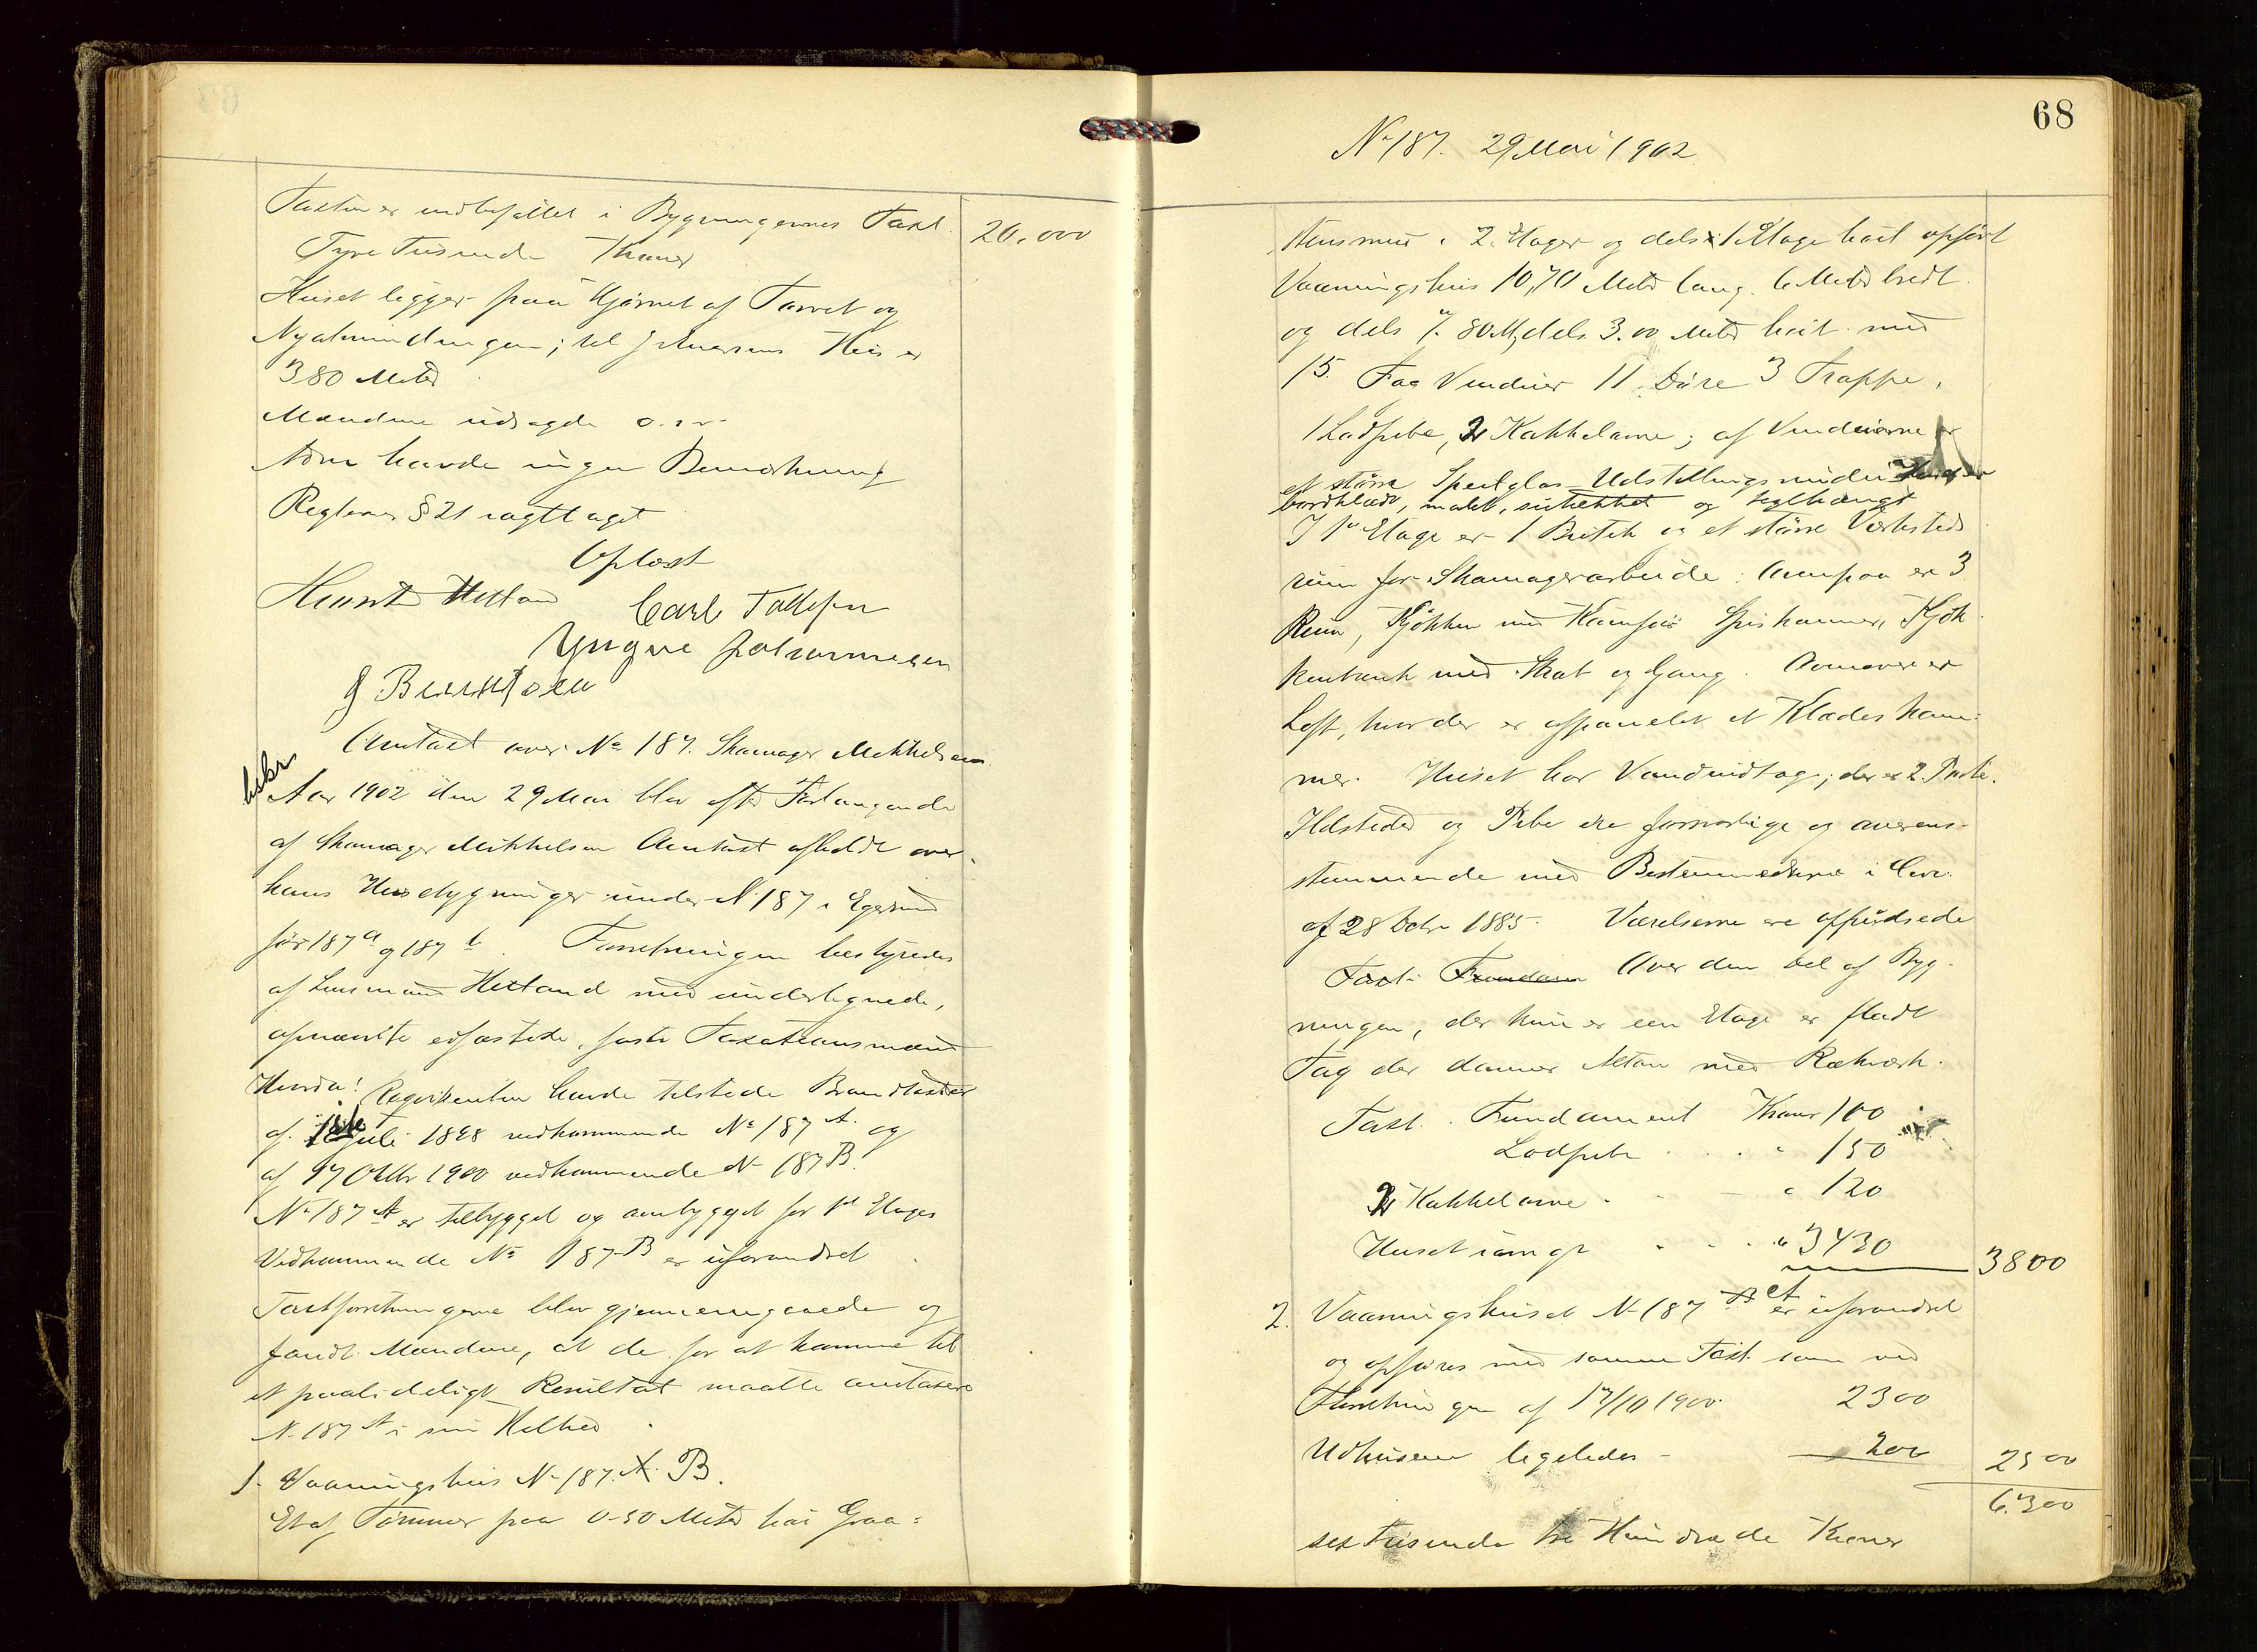 Taxten er indbefattet i Bygningernes Taxt. 20,000
Tyve Tusende Kroner
Huset ligger paa Hjörnet af Torvet og
Nyalmindingen; til J. Hus er
3 80 Meter
Mændene udsagde o.s.v.
som havde ingen Bemærkning
Reglerne § 21 iagttaget
Oplæst
Hetland Carl Tollefsen
Yngve
J Berentsen
Omtaxt over No 187. Skomager Mikkelsen.
bekr
Aar 1902 den 29 Mai blev efter Forlangende
af Skomager Mikkelsen Omtaxt afholdt over
hans Husebygninger under N 187 i Egersund
før 187 a og 187 b. Forretningen bestyredes
af Lensmand Hetland med undertegnede,
opnævnte edfæstede, faste Taxationsmænd
Hvorda! Reqvirenten havde tilstede Brandtaxter
af Juli 1898 vedkommende No 187 A. og
af 17 Oktbr 1900 vedkommende N 187 B.
No 187 A er tilbygget og ombygget for 1st Etages
Vedkommende No 187 B er uforandret.
Taxtforretningerne blev gjennemgaaede og
fandt Mændene, at de for at komme til
et paalideligt Resultat maatte omtaxere
N. 187 A i sin Helhed.
1. Vaaningshus No 187. A. B.
Et af Tömmer paa 0-50 Meter höi Graa=
68
No 187. 29 Mai 1902
stensmur i 2 Etager og dels i 1 Etage höit opfört
Vaaningshus 10,70 Meter lang. 6 Meter bredt
og dels 7. 80 M, dels 3.00 Meter höit med
15. Fag Vinduer 11 Döre 3 Trappe,
1 Lodpibe, 2 Kakkelovne; af Vinduerne er
et större Speilglas Udstillingsvindu Huset er
bordklædt, malet, og teglhængt
I 1st Etage er 1 Butik og et större Værksteds
rum for Skomagerarbeide. Ovenpaa er 3
Rum, Kjökken med Komfur Spiskammer, Kjök
kenbænk med Skab og Gang. Ovenover er
Loft, hvor der er afpanelet et Klædeskam=
mer. Huset har Vandindtag; der er 2.
Ildsteder og Pibe ere forsvarlige og overens-
stemmende med Bestemmelserne i Circ.
af 28 Octr 1885. Værelserne ere oppudsede
Taxt. Fundam Over den Del af Byg-
ningen, der kun er een Etage er fladt
Tag der danner Altan med Rækværk.
Taxt. Fundament Kroner 100
Lodpibe . . . " 150
2 Kakkelovne . - - " 120
Huset iövrigt . . . " 3430 3800
2. Vaaningshuset N 187 B A er uforandret
og opföres med samme Taxt som ved
Forretningen af 17/10 1900. 2300
Udhusene ligeledes - 200 2500
6.300
sex Tusende tre Hundrede Kroner